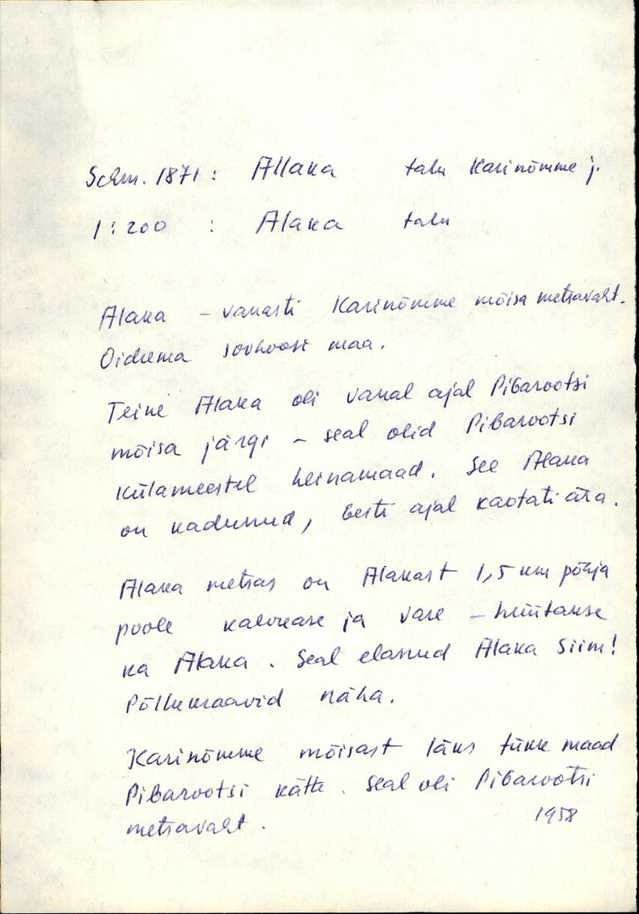 Schm. 1871 : Allaka talu Karinõmme j.
1:200 : Alaka talu
Alaka – vanasti Karinõmme mõisa metsavaht.
Oidrema sovhoosi maa.
Teine Alaka oli vanal ajal Pibarootsi
mõisa järgi – seal olid Pibarootsi
külameestel heinamaad. See Alaka
on kadunud, Eesti ajal kaotati ära.
Alaka metsas on Alakast 1,5 km põhja
poole kalvease ja vare – hüütakse
ka Alaka. Seal elanud Alaka Siim!
Põllukraavid näha.
Karinõmme mõisast läks tükk maad
Pibarootsi kätte. Seal oli Pibarootsi
metsavaht.
1958